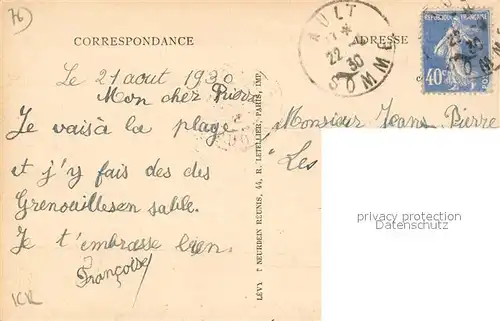 76
CORRESPONDANCE
ADRESSE
AULT
22 - 8
30
SOMME
RÉPUBLIQUE FRANÇAISE
40c
POSTES
Le 21 aout 1930
Mon cher Pierre
Je vais à la plage
et j'y fais des des
Grenouilles en sable.
Je t'embrasse bien.
Françoise
Monsieur Jeans Pierre
"Les
LÉVY ET NEURDEIN RÉUNIS, 44, R. LETELLIER, PARIS, IMP.
privacy protection
Datenschutz